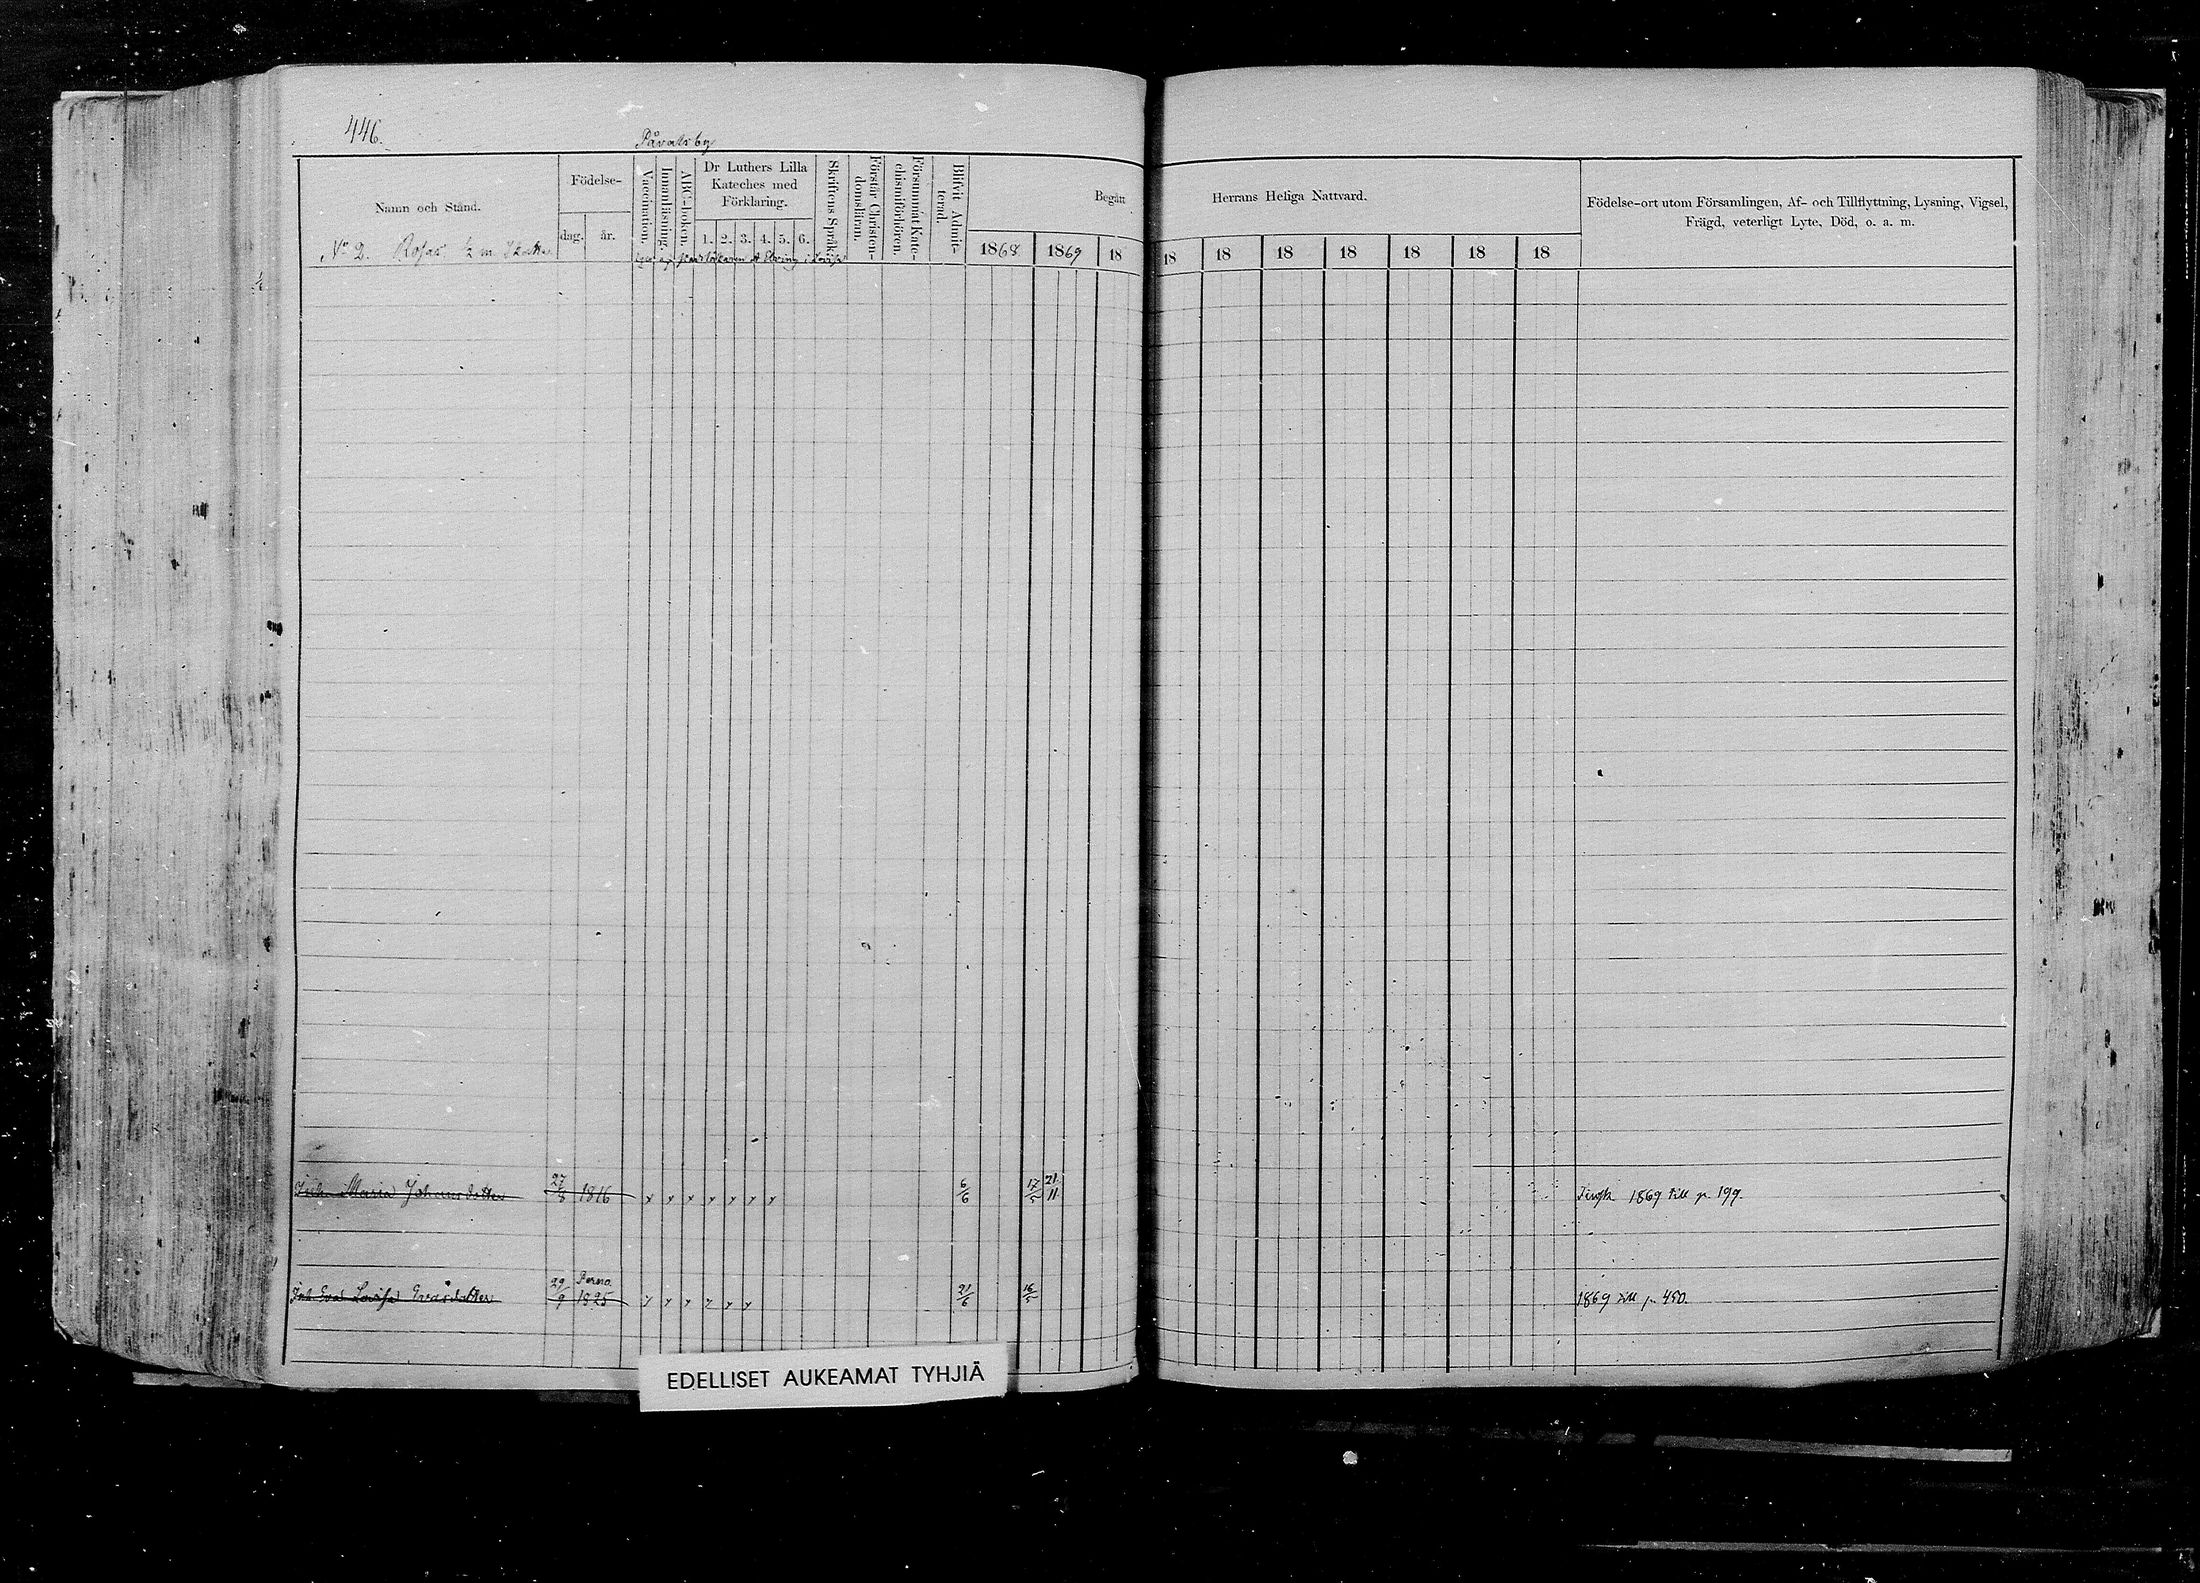 446.
Påvalsby
Namn och Stånd.
Födelse-
dag.
år.
Vaccination.
Innanläsning.
ABC-boken.
Dr Luthers Lilla
Kateches med
Förklaring.
1. 2. 3. 4. 5. 6.
Skriftens Språk.
Förstår Christen-
domsläran.
Försummat Kate-
chismiförhören.
Blifvit Admit-
terad.
Begått
Herrans Heliga Nattvard.
1868 1869 18
18 18 18 18 18 18 18
Födelse-ort utom Församlingen, Af- och Tillflyttning, Lysning, Vigsel,
Frägd, veterligt Lyte, Död, o. a. m.
No 2. ½ m.
i Lovisa
Inh. Maria Johansdotter 27/8 1816 6/6 17/5 21/11 1869 till p. 199.
Perno
Inh. Eva Lovisa Evasdotter 29/9 1825 21/6 16/5 1869 till p. 450.
EDELLISET AUKEAMAT TYHJIÄ